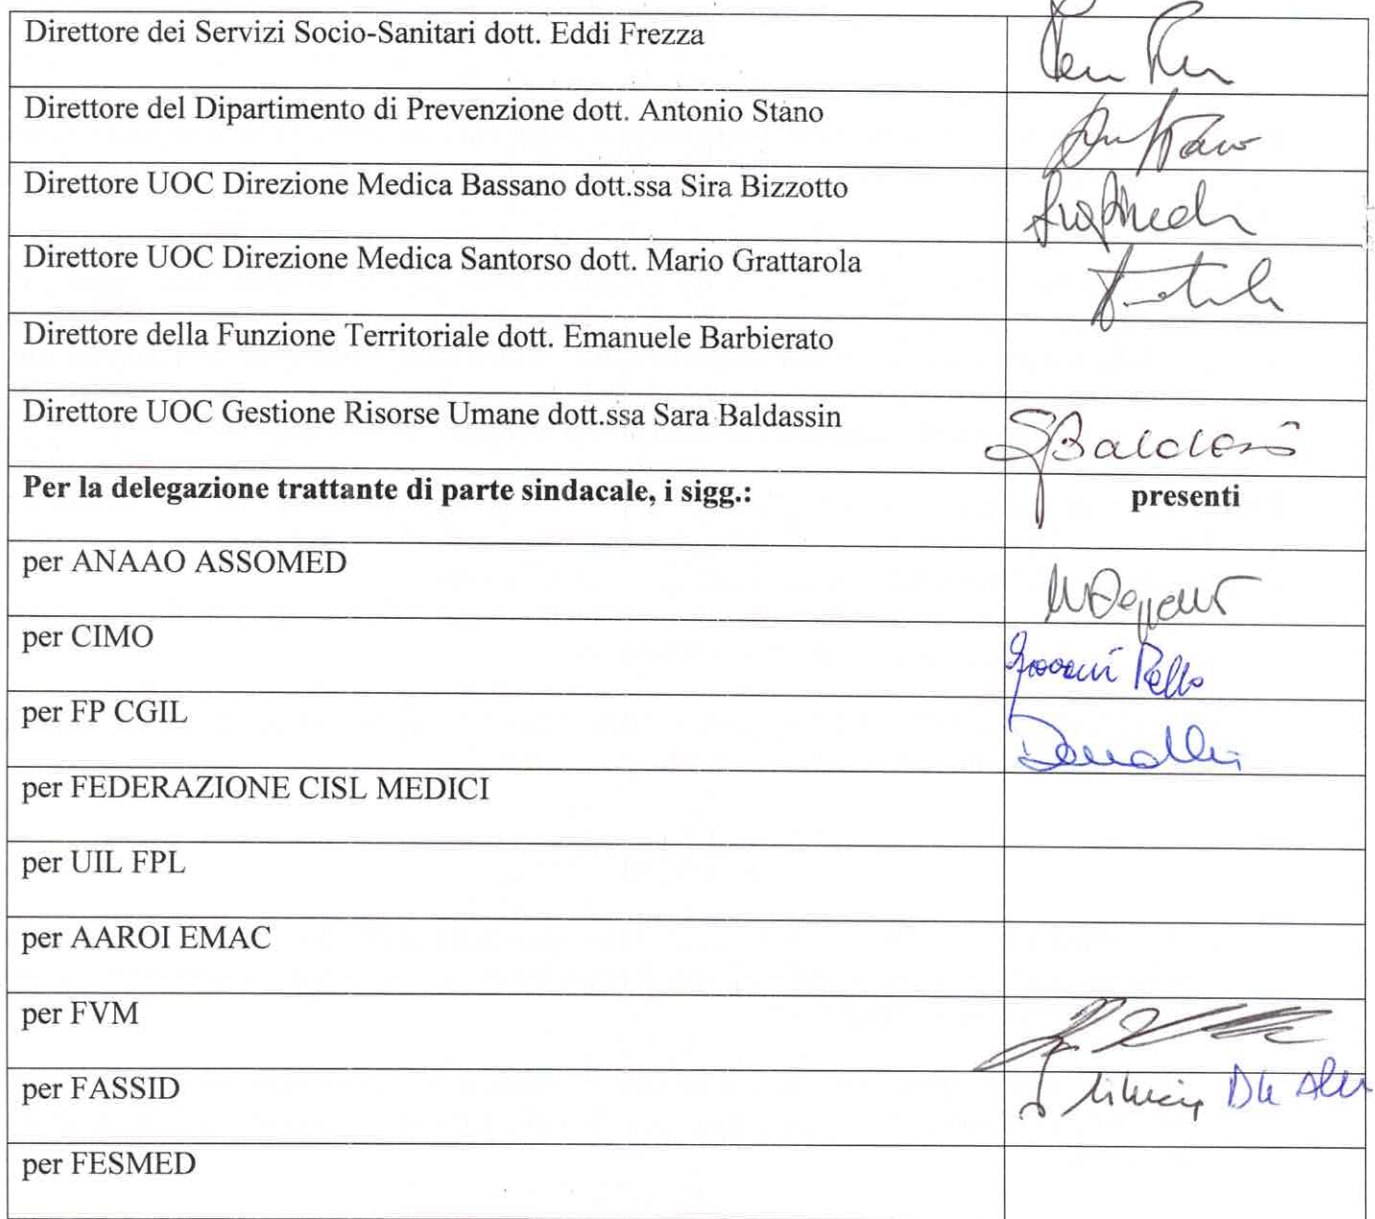 Direttore dei Servizi Socio-Sanitari dott. Eddi Frezza
Direttore del Dipartimento di Prevenzione dott. Antonio Stano
Direttore UOC Direzione Medica Bassano dott.ssa Sira Bizzotto
Direttore UOC Direzione Medica Santorso dott. Mario Grattarola
Direttore della Funzione Territoriale dott. Emanuele Barbierato
Direttore UOC Gestione Risorse Umane dott.ssa Sara Baldassin
Per la delegazione trattante di parte sindacale, i sigg.: presenti
per ANAAO ASSOMED
per CIMO
per FP CGIL
per FEDERAZIONE CISL MEDICI
per UIL FPL
per AAROI EMAC
per FVM
per FASSID
per FESMED